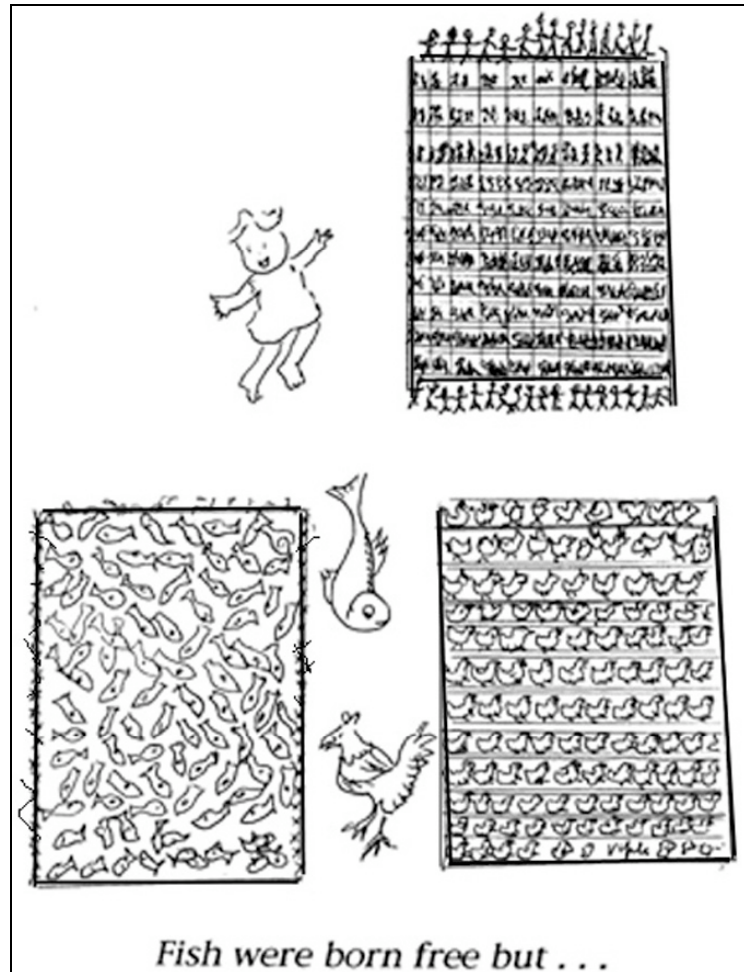 Fish were born free but . . .